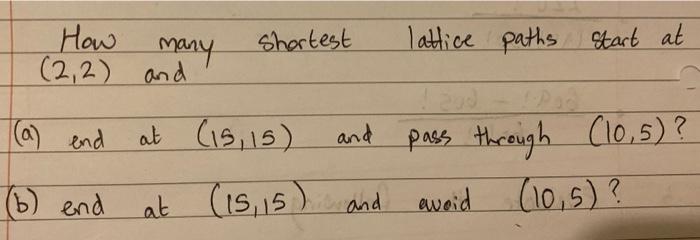 How many shortest lattice paths start at
(2,2) and
(a) end at (15,15) and pass through (10,5)?
(b) end at (15,15) and avoid (10,5)?